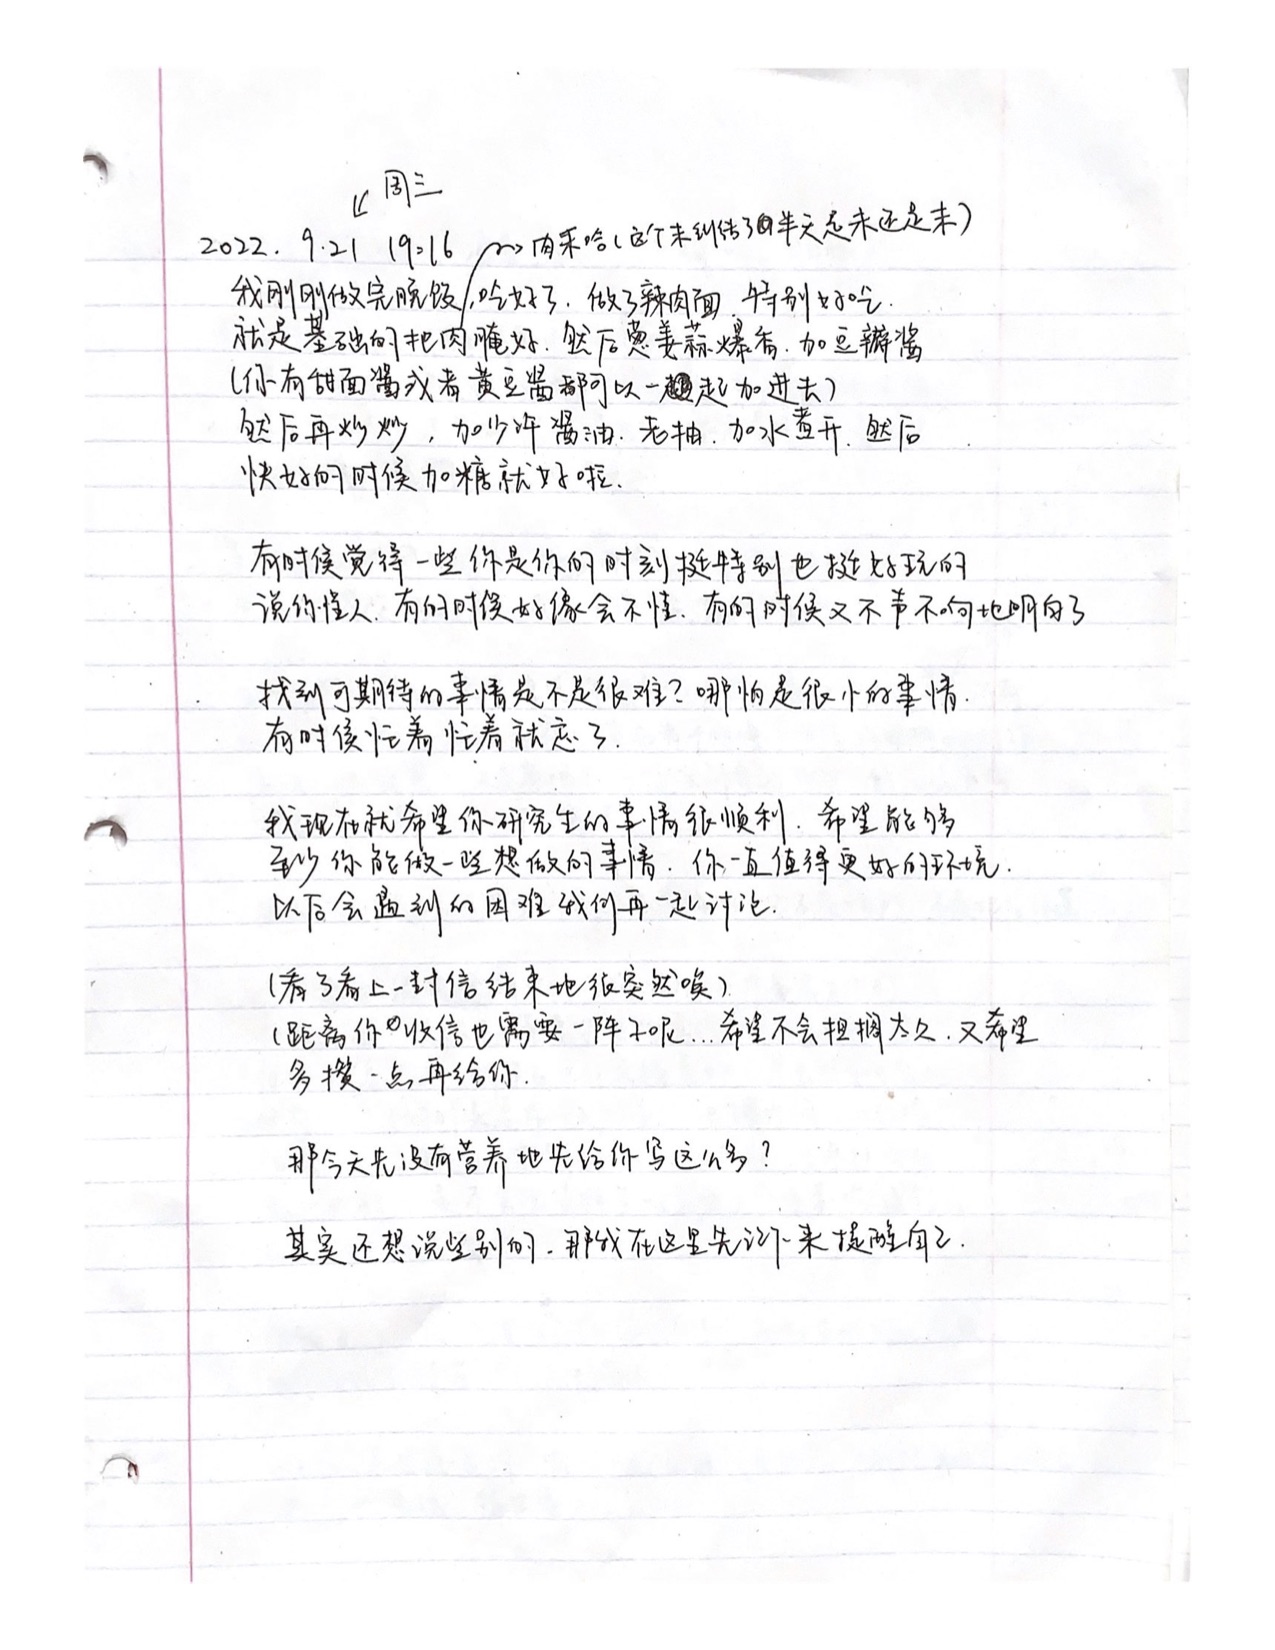 周三
2022. 9.21 19:16 肉末哈(这个末纠结了半天是未还是末)
我刚刚做完晚饭,吃好了. 做了辣肉面, 特别好吃.
就是基础的把肉腌好. 然后葱姜蒜爆香. 加豆瓣酱
(你有甜面酱或者黄豆酱都可以一起加进去)
然后再炒炒, 加少许酱油. 老抽. 加水煮开. 然后
快好的时候加糖就好啦.
有时候觉得一些你是你的时刻挺特别也挺好玩的
说你怪人. 有的时候好像会不懂. 有的时候又不声不响地明白了
找到可期待的事情是不是很难? 哪怕是很小的事情.
有时候忙着忙着就忘了.
我现在就希望你研究生的事情很顺利. 希望能够
至少你能做一些想做的事情. 你一直值得更好的环境.
以后会遇到的困难我们再一起讨论.
(看了看上一封信结束地很突然唉)
(距离你收信也需要一阵子呢...希望不会耽搁太久. 又希望
多攒一点再给你.
那今天先没有营养地先给你写这么多?
其实还想说些别的. 那我在这里先记下来提醒自己.